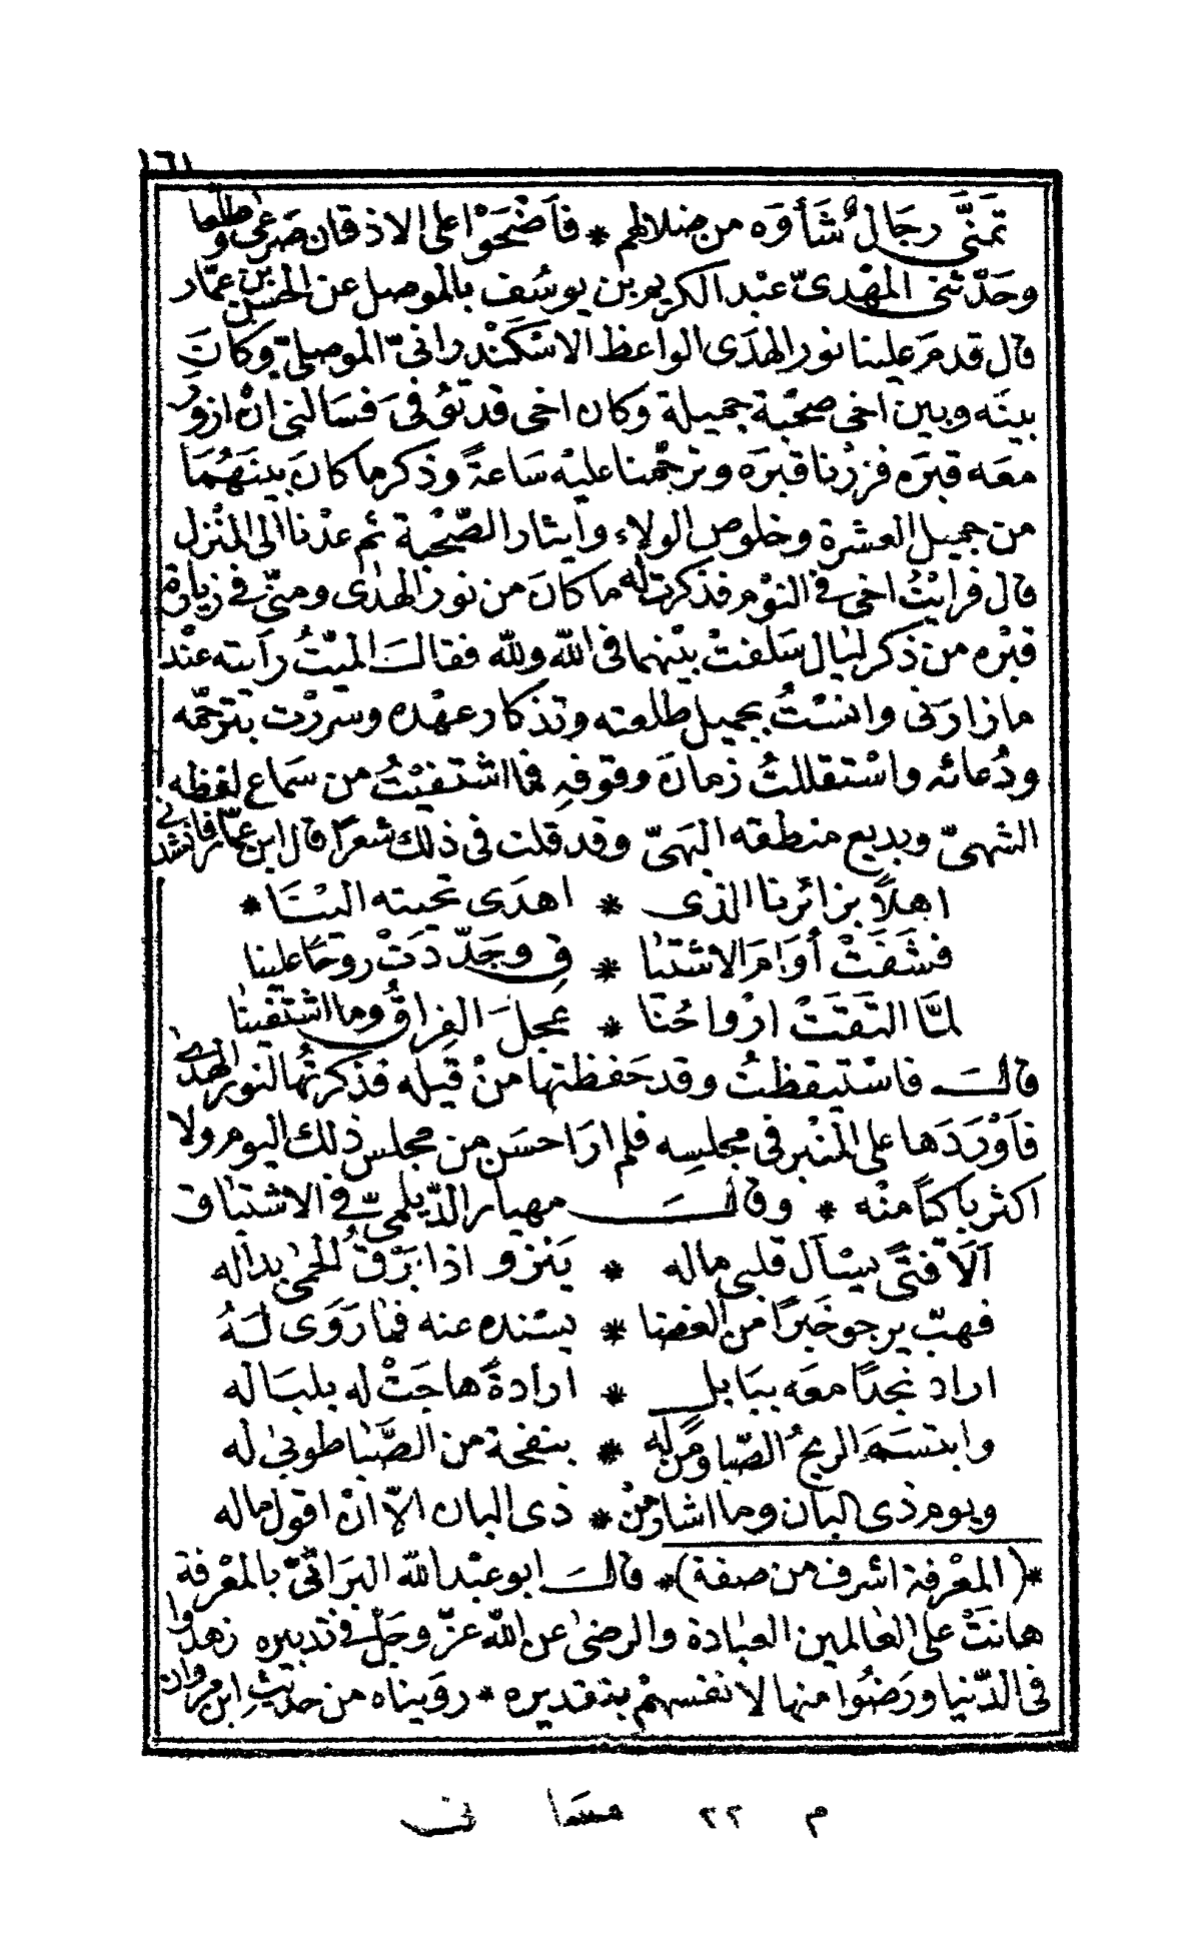 ١٦١
تَمَنَّى رجَالٌ شَأوَه من ضلالهم * فأَضْحَوْا على الاذقان صَرعى وطلّعا
وحَدّثنى المهْدىّ عبْد الكريم بن يوسُف بالموصل عن الحسن بن عمّار
قال قدمَ علينا نور الهدَى الواعظ الاسْكَنْدرانىّ الموصلىّ وكانَ
بينَه وبين اخى صحْبَة جميلة وكان اخى قد تُوُفىَ فسَالنى انْ ازورَ
معَه قبرَه فزرْنا قبرَه وترحّمنا عليْه سَاعةً وذكرما كانَ بينَهُمَا
من جميل العشرة وخلوص الولاء وايثار الصّحْبة ثم عدْنا الى المنْزل
قال فرايْتُ اخى فى النوْم فذكرت له ما كانَ من نور الهدى ومنّى فى زيارة
قبْره من ذكر ليال سَلفتْ بيْنهما فى الله ولله فقالَ الميّتُ رأَيته عنْد
ما زارَنى وانسْتُ بجميل طلعته وتذكار عهْده وسررْت بترحّمه
ودُعائه واسْتقللتُ زمانَ وقوفهِ فما اشْتفيْتُ من سَماع لفظه
الشهىّ وبديع منطقه البَهىّ وقد قلت فى ذلك شعرًا قال ابن عمّار فانشدنى
اهلاً بزائرنا الذى * اهدَى تحيته اليْنَا *
فشَفَتْ أوَامَ الاشتيا * قِ وجَدّدَتْ روحًا علينا
لمَّا التقَتْ ارْواحُنَا * عجلَ الفِراقُ وما اشتَفينا
قالَ فاسْتيقظتُ وقد حَفظتها منْ قيله فذكرتُها لنور الهدى
فأَوْرَدَها على المنْبر فى مجلسِه فلم ارَ احسَن من مجلس ذلك اليوم ولا
اكثر باكيًا منْه * وقالَ مهيار الدّيلمىّ فى الاشتياق
اَلَا فتًى يسْأل قلبى ماله * يَنْزو اذا بَرْقُ الحمى بدا له
فهبّ يرجو خبَرًا من الغضا * يسْنده عنه فما رَوَى لهُ
اراد نجدًا معَه ببَابل * ارادةً هاجَتْ له بلبَاله
وابتسَمَ الريحُ الصّبا ومَنْ له * بنفحة من الصَّبا طوبى له
ويوم ذى البان وما اشار منْ * ذى البان الاّ انْ اقول ماله
*( المعْرفة اشرف من صفة )* قالَ ابو عبْد الله البَرَاثىّ بالمعْرفة
هانَتْ على العالمين العبادة والرضى عن الله عزّ وجلّ فى تدبيره زهدوا
فى الدّنيا ورضُوا منها لانفسهمْ بتقديره * روَيناه من حديْث ابن مروان
م ٢٢ مسَا نى